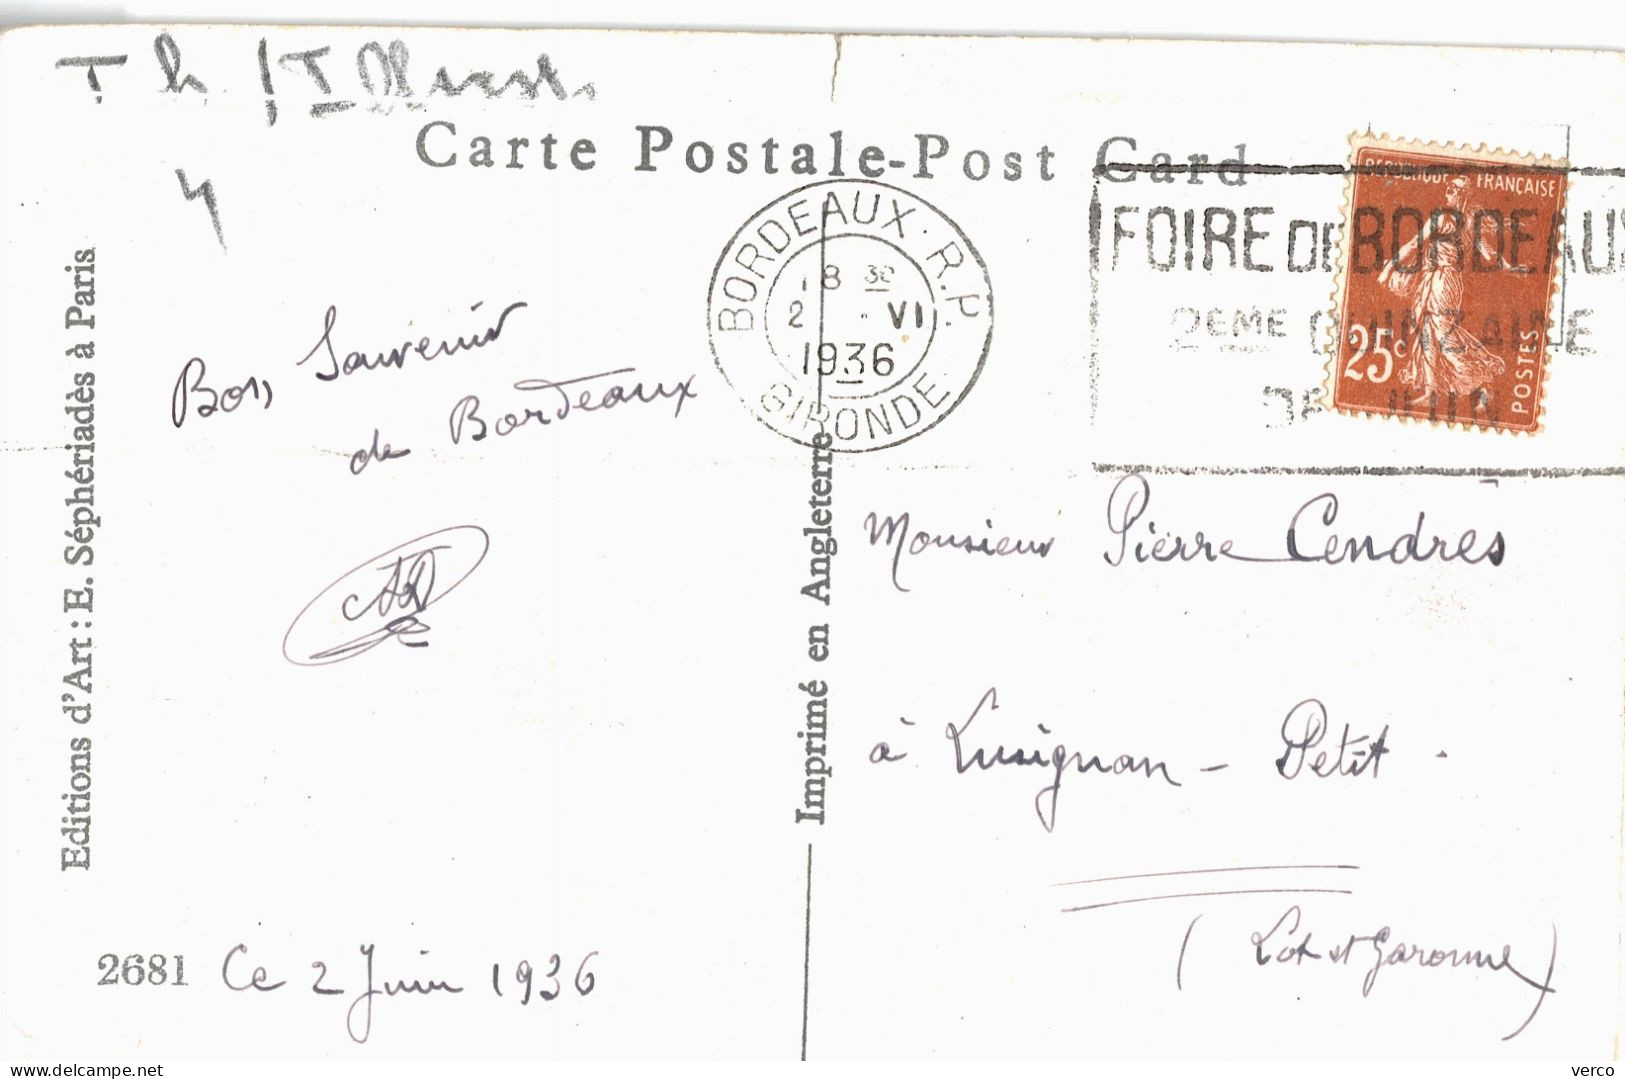 Carte Postale-Post Card
BORDEAUX . R.P.
8 30
2 . VI
1936
GIRONDE
FOIRE DE BORDEAUX
2EME QUINZAINE
DE JUIN
REPUBLIQUE FRANÇAISE
25c
POSTES
Editions d'Art : E. Séphériadès à Paris
Bon Souvenir
de Bordeaux
2681
Ce 2 Juin 1936
Imprimé en Angleterre
Monsieur Pierre Cendres
à Lusignan - Petit -
(Lot et Garonne)
verco